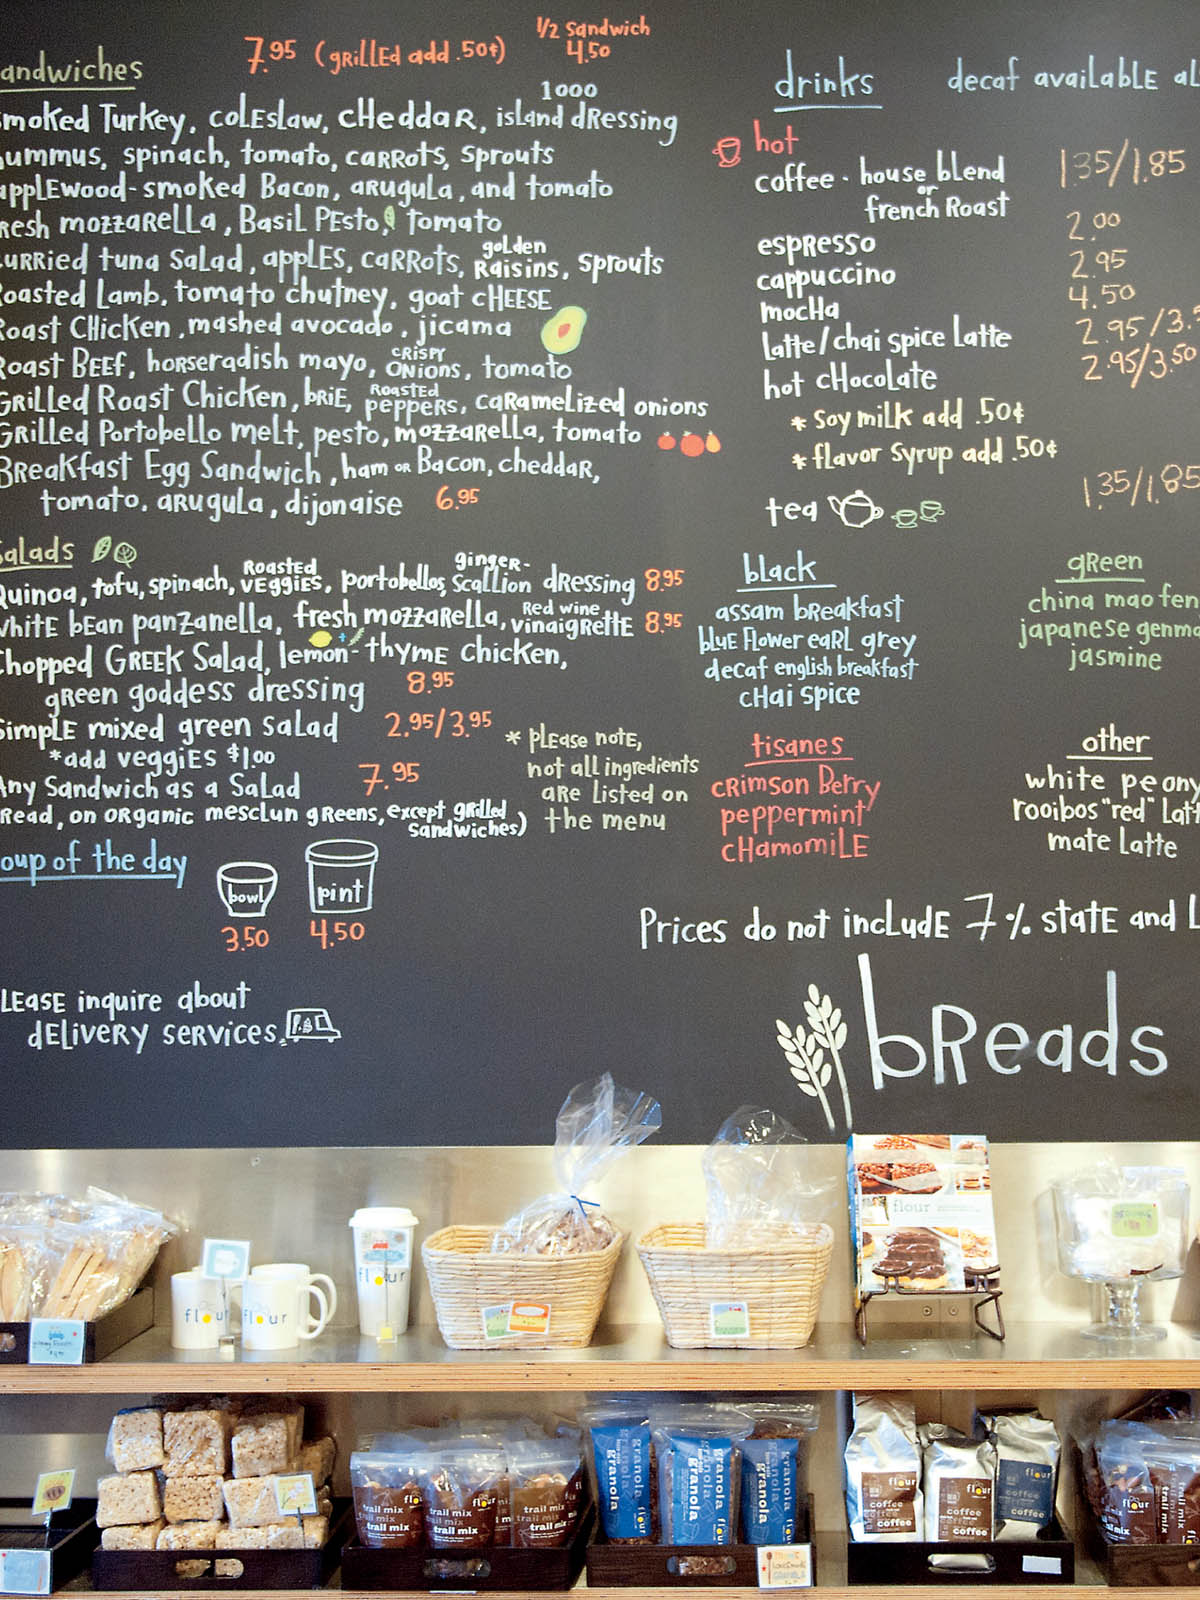 andwiches 7.95 (grilled add .50¢) 1/2 sandwich 4.50
smoked Turkey, coleslaw, cheddar, 1000 island dressing
ummus, spinach, tomato, carrots, sprouts
applewood-smoked Bacon, arugula, and tomato
resh mozzarella, Basil Pesto, tomato
urried tuna salad, apples, carrots, golden raisins, sprouts
oasted Lamb, tomato chutney, goat cheese
oast Chicken, mashed avocado, jicama
oast Beef, horseradish mayo, crispy onions, tomato
Grilled Roast Chicken, brie, roasted peppers, caramelized onions
Grilled Portobello melt, pesto, mozzarella, tomato
Breakfast Egg Sandwich, ham or Bacon, cheddar,
tomato, arugula, dijonaise 6.95
salads
Quinoa, tofu, spinach, roasted veggies, portobellos, ginger-scallion dressing 8.95
white bean panzanella, fresh mozzarella, Red wine vinaigrette 8.95
Chopped Greek Salad, lemon-thyme chicken,
green goddess dressing 8.95
Simple mixed green salad 2.95/3.95
*add veggies $1.00
Any Sandwich as a Salad 7.95
read, on organic mesclun greens, except grilled sandwiches)
* please note,
not all ingredients
are listed on
the menu
oup of the day
bowl 3.50
pint 4.50
lease inquire about
delivery services.
drinks decaf available al
hot
coffee - house blend 1.35/1.85
or
french Roast
espresso 2.00
cappuccino 2.95
mocha 4.50
latte/chai spice latte 2.95/3.5
hot chocolate 2.95/3.50
* soy milk add .50¢
* flavor syrup add .50¢
tea 1.35/1.85
black
assam breakfast
blue flower earl grey
decaf english breakfast
chai spice
green
china mao fen
japanese genma
jasmine
tisanes
crimson Berry
peppermint
chamomile
other
white peony
rooibos "red" Latt
mate Latte
Prices do not include 7% state and L
breads
flour
flour
flour
flour
trail mix
trail mix
trail mix
trail mix
granola
granola
granola
flour
coffee
coffee
flour
coffee
coffee
flour
coffee
flour
trail mix